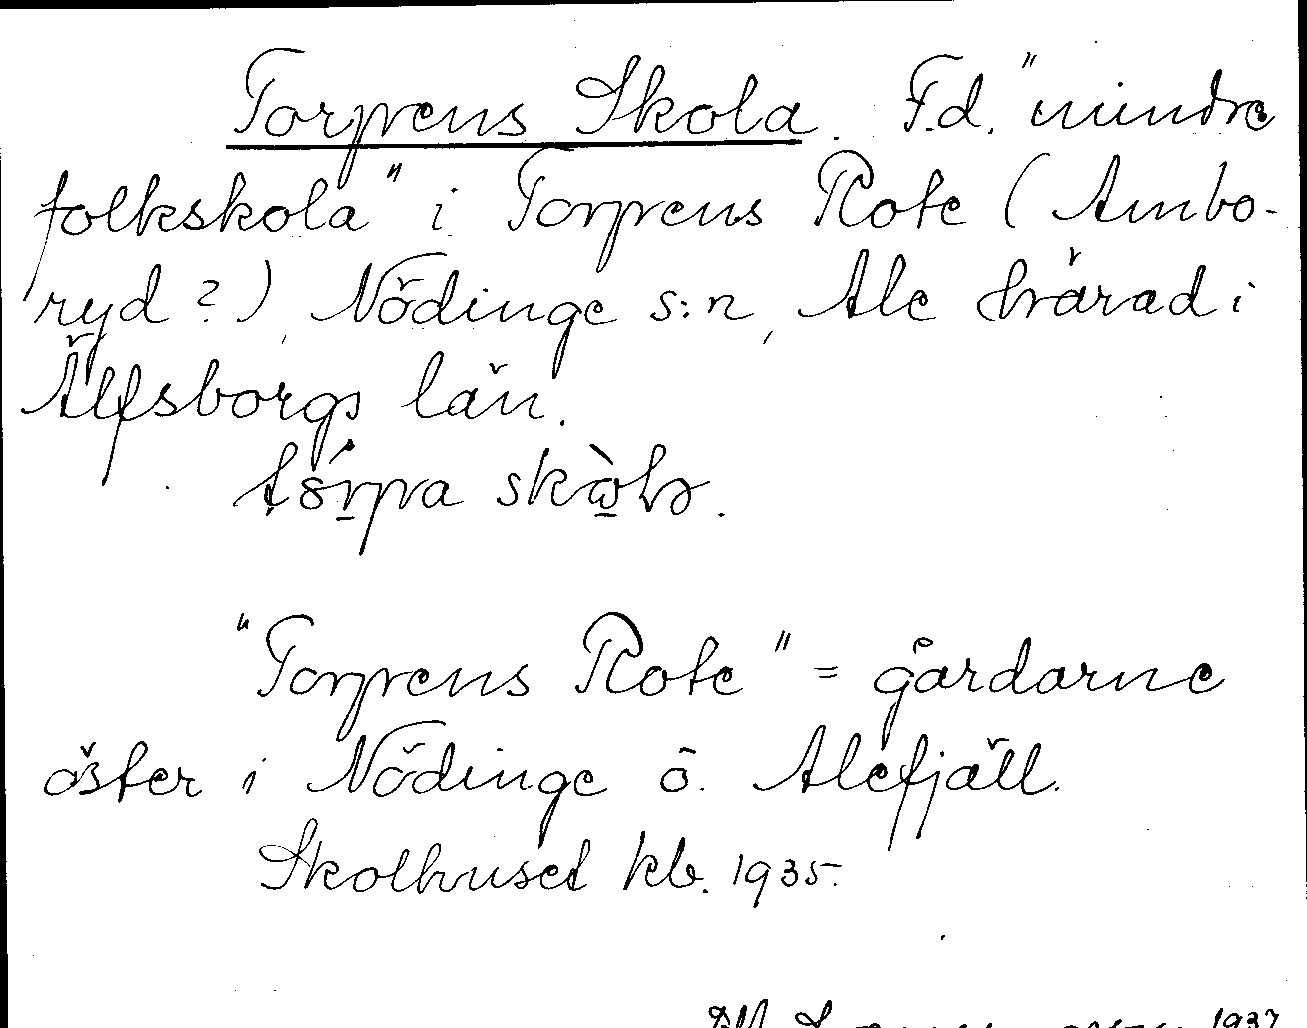 Torpens Skola. F.d. "mindre
folkskola" i Torpens Rote (Ambo-
ryd?), Nödinge s:n, Ale härad i
Älfsborgs län.
skola.
"Torpens Rote" = gårdarne
öster i Nödinge ö. Alefjäll.
Skolhuset kb. 1935.
1937